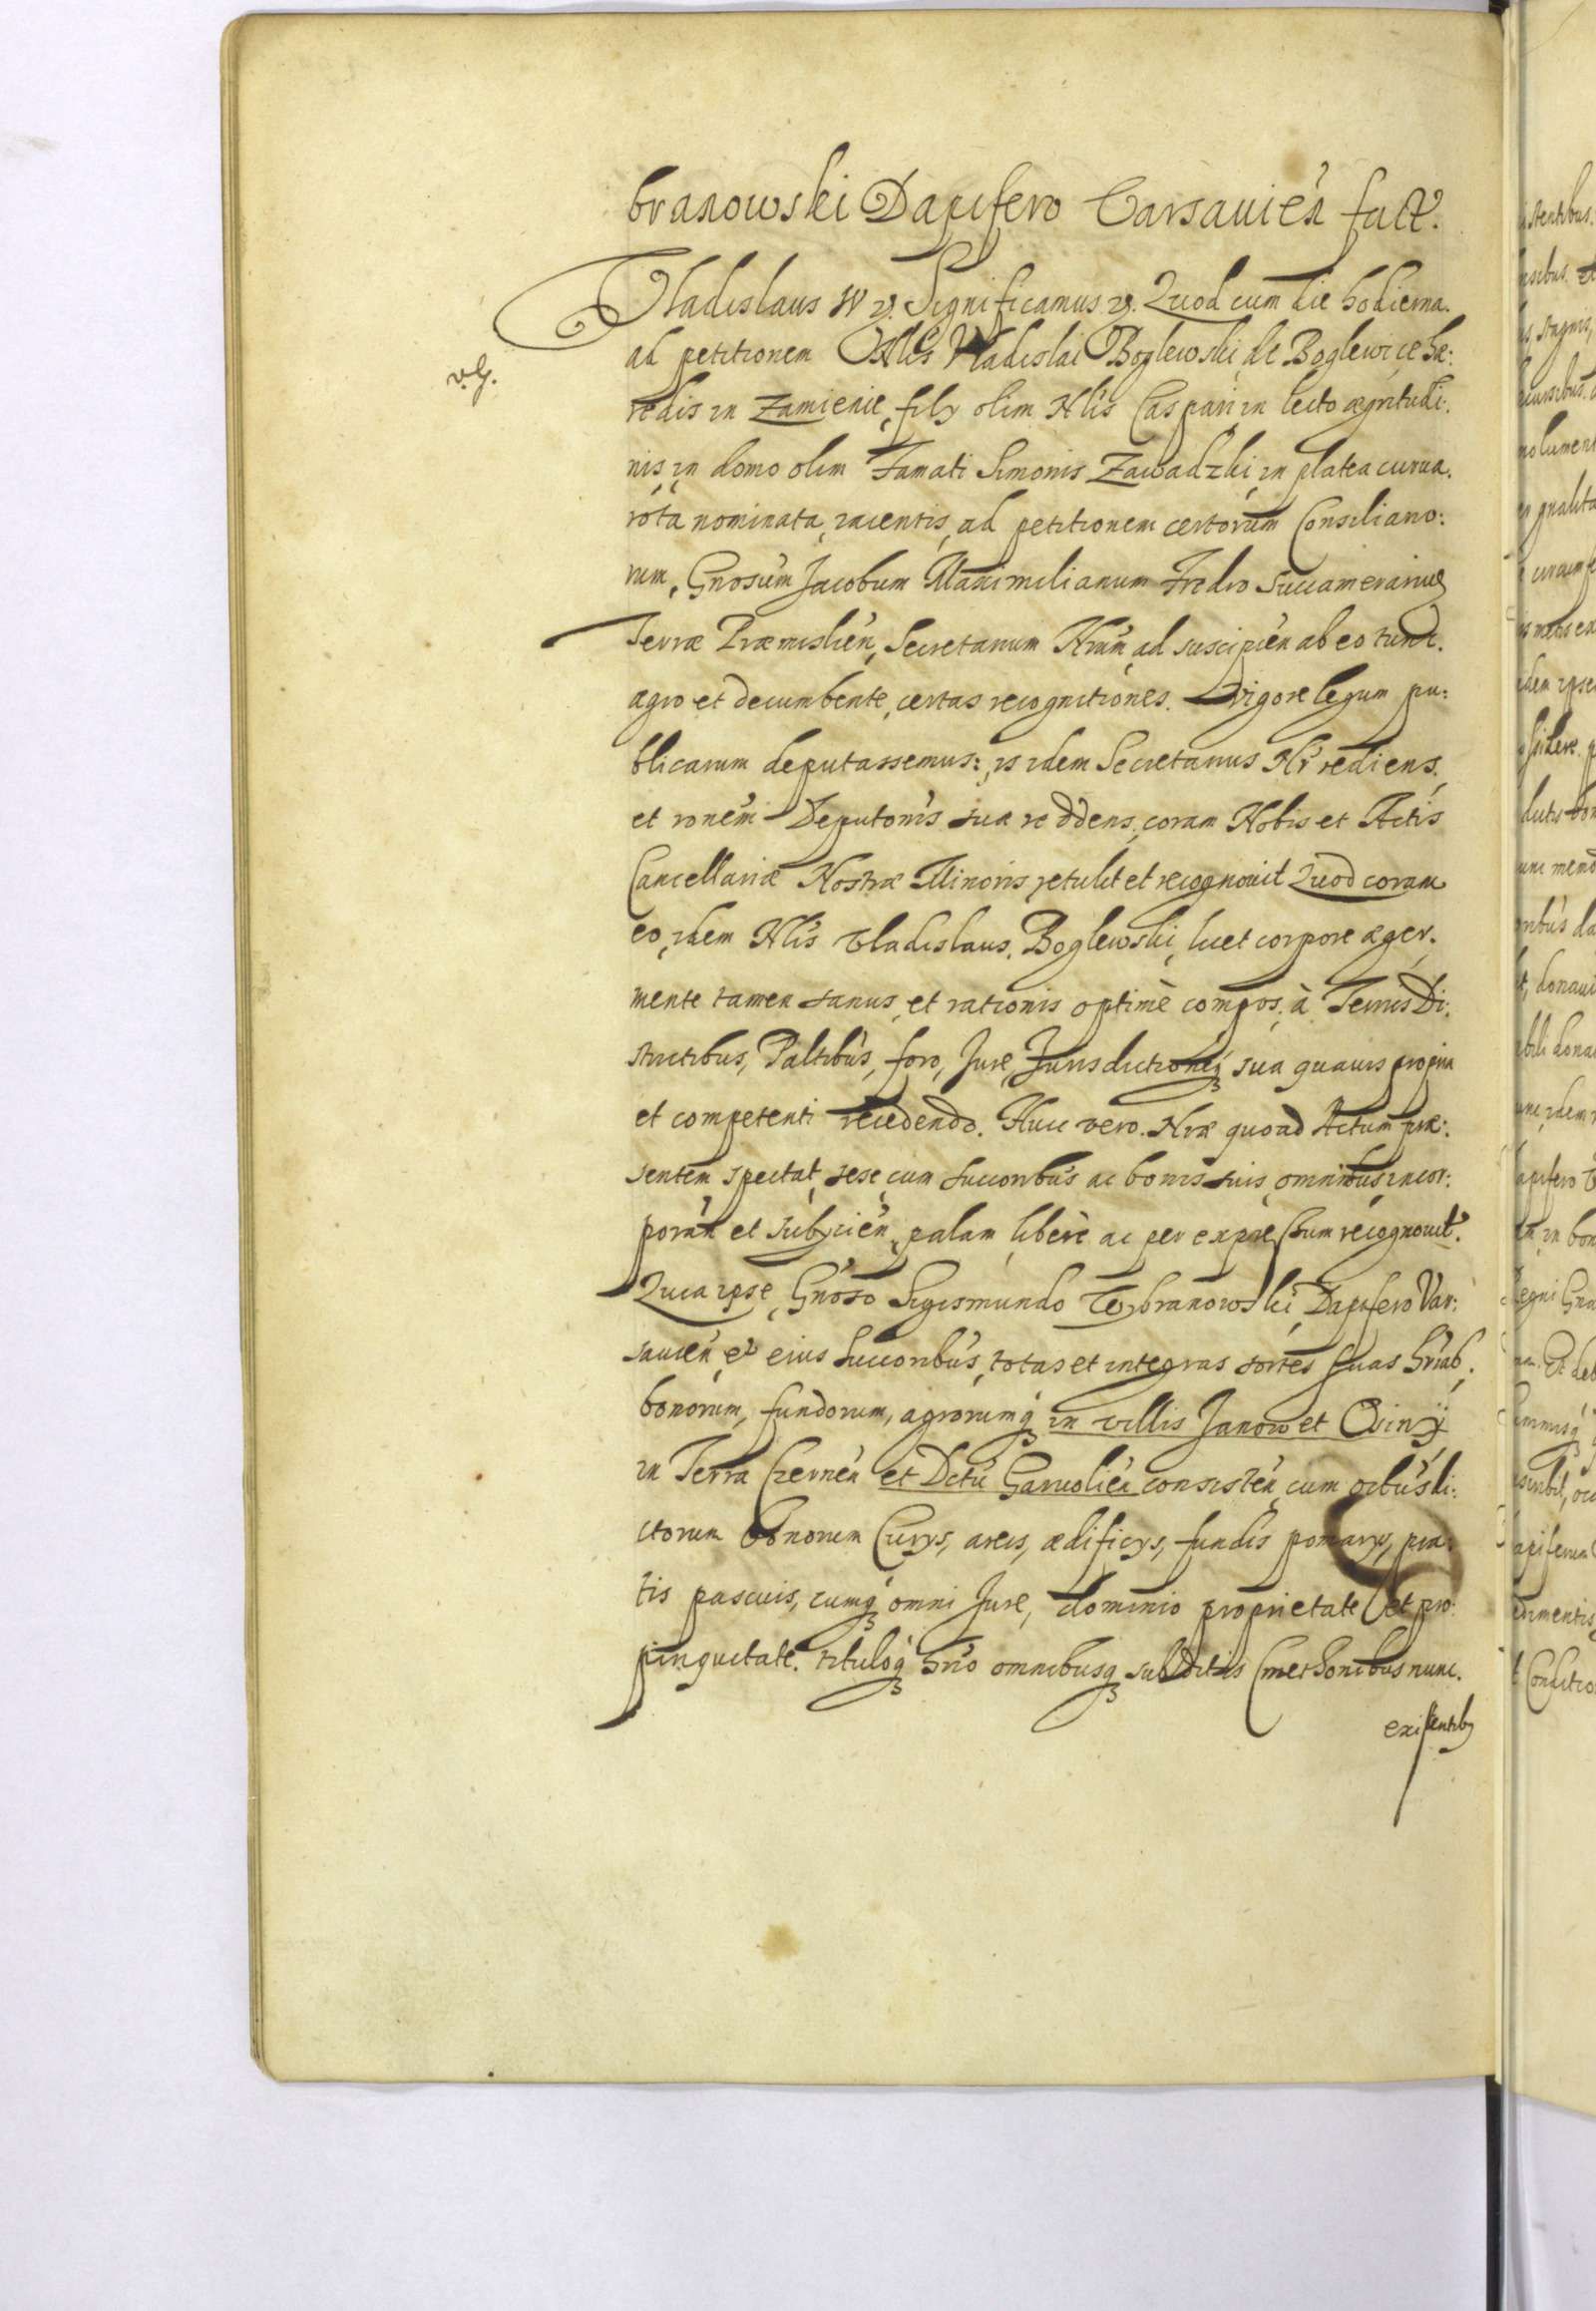 branowski Dapifero Varsavień fact.
Vladislaus IV Significamus Quod cum die hodierna.
ad petitionem Nlis Vladislai Boglewski, de Boglewice hæ:
v.G.
redis in Zamienie, filÿ olim Nlis Caspari in lecto ægritudi:
nis, in domo olim Famati Simonis Zawadzki, in platea curua.
rota nominata, iacentis, ad petitionem certorum Consiliario:
rum, Gnosum Jacobum Maximilianum Fredro Succamerarium
Terræ Præmislień, Secretarium Nrum, ad suscipień ab eo tunc.
ægro et decumbente, certas recognitiones. vigore legum pu:
blicarum deputassemus: is idem Secretarius Nr rediens.
et ronem Deputonis suæ reddens, coram Nobis et Actis
Cancellariæ Nostræ Minoris retulit et recognouit Quod coram
eo, idem Nlis Vladislaus Boglewski, licet corpore æger.
mente tamen sanus, et rationis optimè compos, à Terris Di:
strictibus, Paltibus, foro, Jure, Jurisdictioneq́ sua quauis propria
et competenti recedendo. Huic vero Nræ quoad Actum præ:
sentem spectat, sese cum succoribus ac bonis suis omnibus incor:
porań et subÿcień, palam liberè ac per expressum recognouit.
Quia ipse, Gnoso Sigismundo Wÿbranowski, Dapifero Var:
sauień et eius Succoribus, totas et integras sortes suas hriab,
bonorum, fundorum, agrorumq́ in villis Janow et Osinÿ
in Terra Czerneń et Dctu Garwolień consisteń cum oibus di:
ctorum Bonorum Curÿs, areis, ædificÿs, fundis pomarÿs, pra:
tis pascuis, cumq́ omni Jure, dominio proprietate et pro:
pinquitate. tituloq́ hrio omnibusq́ subditis Cmethonibus nunc.
existentib9